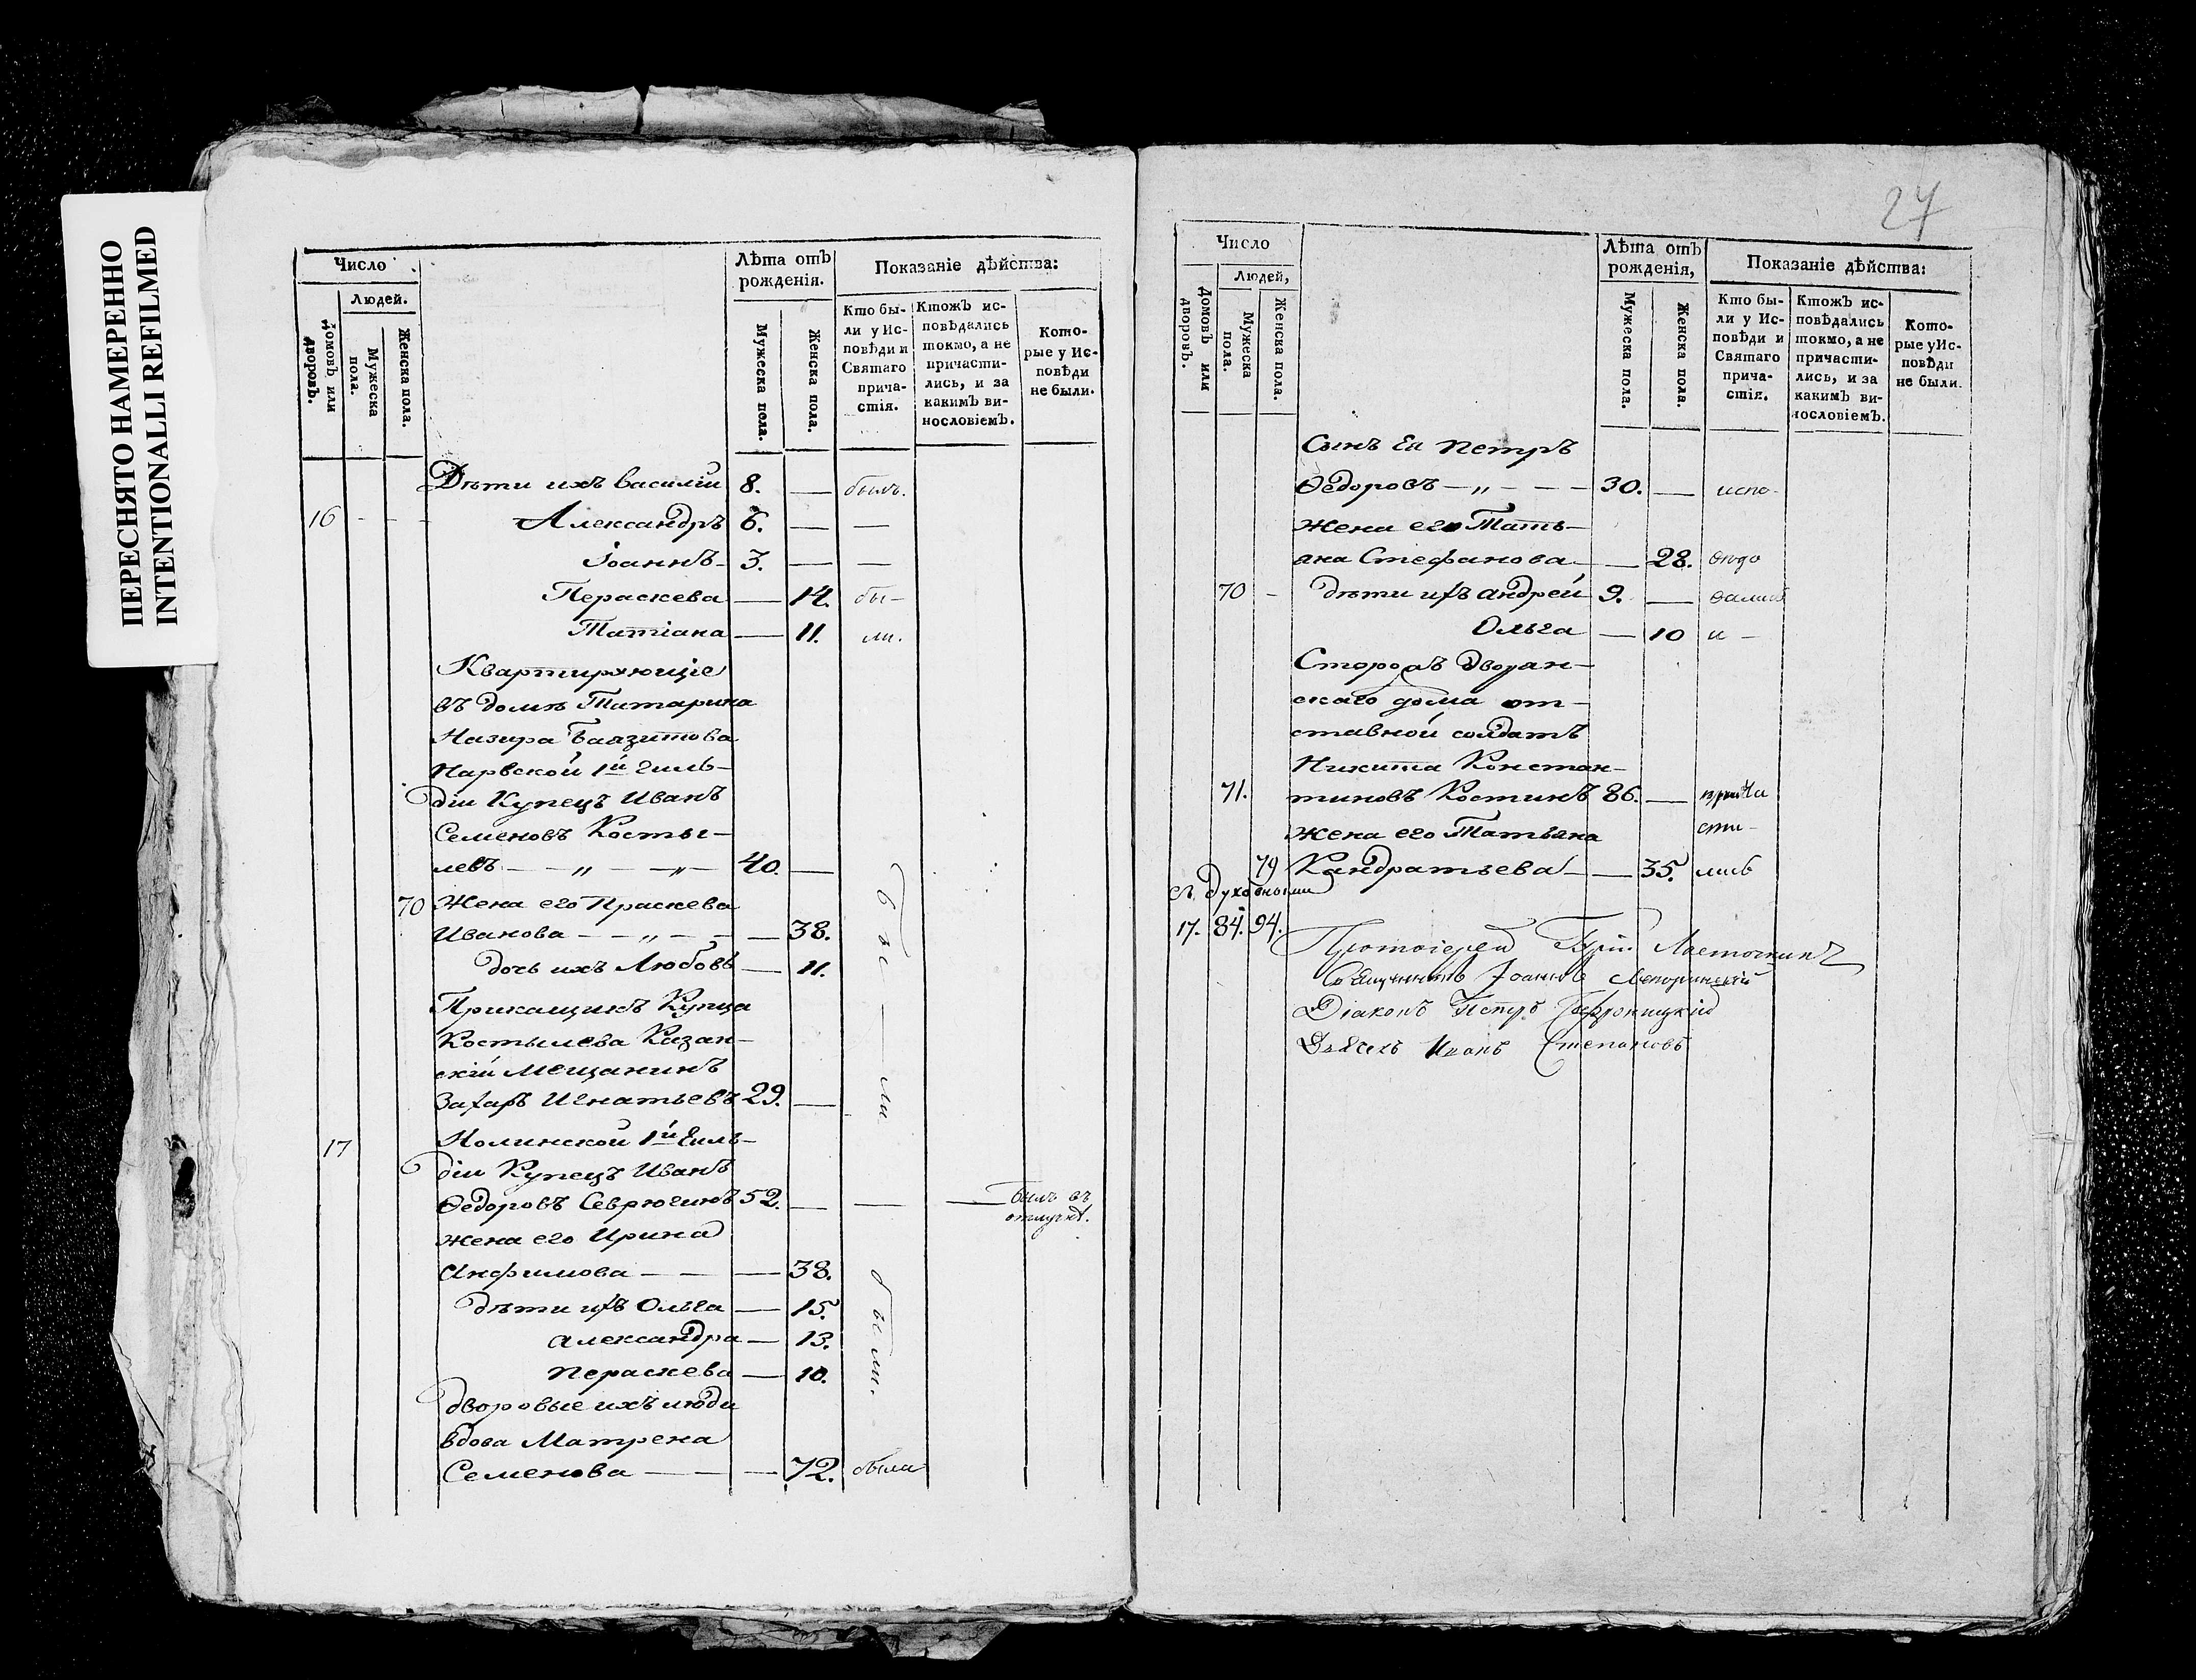 ПЕРЕСНЯТО НАМЕРЕННО
INTENTIONALLI REFILMED
Число
Людей.
Домовъ или дворовъ.
Мужеска пола.
Женска пола.
Лѣта отъ рожденія.
Мужеска пола.
Женска пола.
Показаніе дѣйства:
Кто были у Исповѣди и Святаго причастія.
Ктожъ исповѣдались токмо, а не причастились, и за какимъ винословіемъ.
Которые у Исповѣди не были.
Дѣти ихъ Василій 8. — былъ.
16 - - Александръ 6. — —
Іоаннъ 3. — —
Параскева — 14. бы-
Татіана — 11. ли.
Квартирующіе
въ домѣ Татарина
Назира Баязитова
Нарвской 1й Гиль-
діи Купецъ Иванъ
Семеновъ Косты-
левъ — — „ — — „ — 40. —
70 Жена его Праскева
Иванова — — „ — — — 38.
дочь ихъ Любовь — 11.
бы — ли
Прикащикъ Купца
Костылева Казан-
скій Мещанинъ
Захаръ Игнатьевъ 29. —
17 Нолинской 1й Гиль-
діи Купецъ Иванъ
Ѳедоровъ Севрюгинъ 52. — — — былъ въ
отлучкѣ.
жена его Ирина
Анфимова — — — 38.
дѣти ихъ Ольга — 15.
Александра — 13.
Пераскева — 10.
были.
дворовые ихъ люди
вдова Матрена
Семенова — — — 72. была
27
Число
Людей,
Домовъ или дворовъ.
Мужеска пола.
Женска пола.
Лѣта отъ рожденія,
Мужеска пола.
Женска пола.
Показаніе дѣйства:
Кто были у Исповѣди и Святаго причастія.
Ктожъ исповѣдались токмо, а не причастились, и за какимъ винословіемъ.
Которые у Исповѣди не были.
Сынъ Ея Петръ
Ѳедоровъ — „ — — — 30. — испо-
Жена его Тать-
яна Стефанова — — 28. вѣдо
70 - дѣти ихъ Андрей 9. — вались
Ольга — 10 и —
Сторожъ Дворян-
скаго дома от-
ставной солдатъ
Никита Констан-
71. тиновъ Костинъ 86. — прича
Жена его Татьяна сти-
79 Кандратьева — — 35. лись
съ духовными
17. 84. 94.
Протоіерей Григ. Ласточкинъ
Священникъ Іоаннъ
Діаконъ Петръ
Дьячекъ Иванъ Степановъ